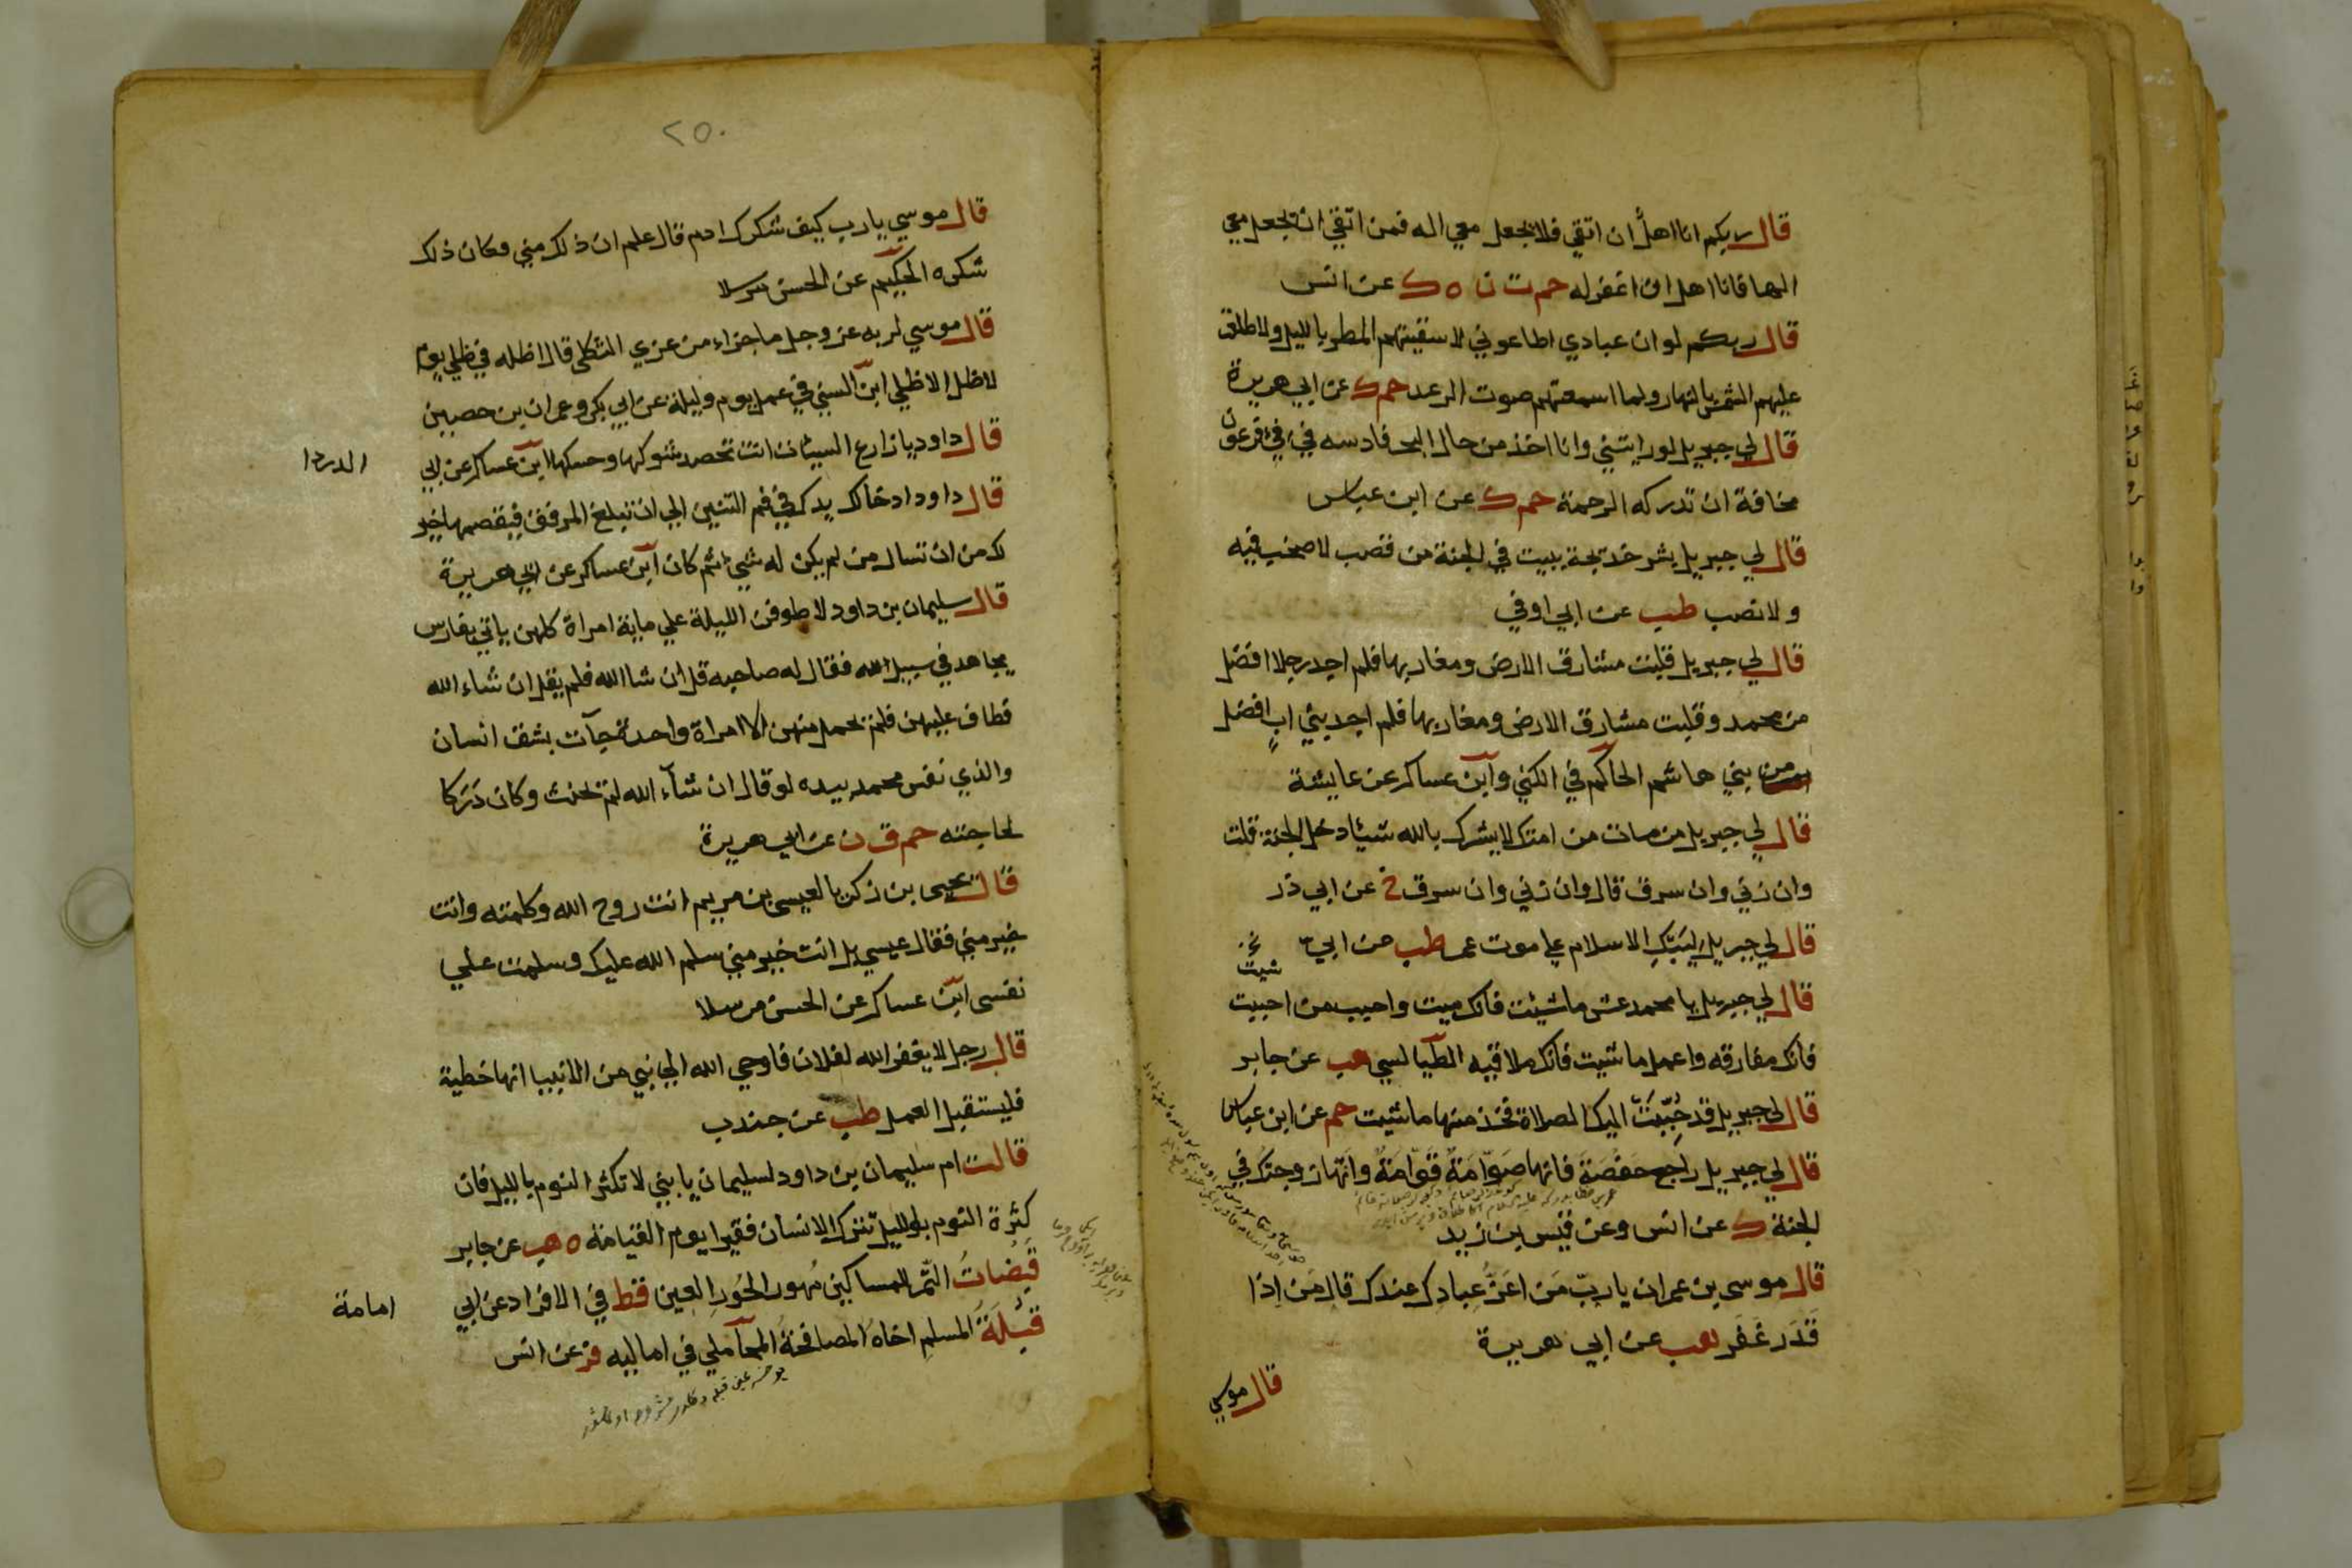 قال ربكم انا اهل ان اتقي فلا يجعل معي اله فمن اتقي ان يجعل معي
الها فانا اهل ان اغفر له حم ت ن ه ك عن انس
قال ربكم لو ان عبادي اطاعوني لاسقيتهم المطر بالليل ولاطلعت
عليهم الشمس بالنهار ولما اسمعتهم صوت الرعد حم ك عن ابي هريرة
قال لي جبريل لو رايتني وانا اخذ من حال البحر فادسه في في فرعون
مخافة ان تدركه الرحمة حم ك عن ابن عباس
قال لي جبريل بشر خديجة ببيت في الجنة من قصب لا صخب فيه
ولا نصب طب عن ابي اوفي
قال لي جبريل قلبت مشارق الارض ومغاربها فلم اجد رجلا افضل
من محمد وقلبت مشارق الارض ومغاربها فلم اجد بني اب افضل
من بني هاشم الحاكم في الكني وابن عساكر عن عايشة
قال لي جبريل من مات من امتك لا يشرك بالله شيئا دخل الجنة قلت
وان زني وان سرق قال وان زني وان سرق خ عن ابي ذر
قال لي جبريل ليبك الاسلام علي موت عمر طب عن ابي
شيت
قال لي جبريل يا محمد عش ما شيئت فانك ميت واحبب من احببت
فانك مفارقه واعمل ما شيت فانك ملاقيه الطيالسي هب عن جابر
قال لي جبريل قد حُبِّبَتْ اليك الصلاة فخذ منها ما شيت حم عن ابن عباس
قال لي جبريل راجع حَفْصَةَ فانها صَوّامَةٌ قَوّامَةٌ وانها زوجتك في
الجنة ك عن انس وعن قيس بن زيد
قال موسى بن عمران يا ربّ مَن اعَزُّ عِبادِك عندك قال مَن اِذا
قَدَر غَفَر هب عن ابي هريرة
قال موسي
٢٥٠
قال موسي يا رب كيف شكرك ادم قال علم ان ذلك مني فكان ذلك
شكره الحكيم عن الحسن مرسلا
قال موسي لربه عز وجل ما جزاء من عزي الثكلى قال اظله في ظلي يوم
لا ظل الا ظلي ابن السني في عمل يوم وليلة عن ابي بكر وعمران بن حصين
قال داود يا زارع السيئات انت تحصد شوكها وحسكها ابن عساكر عن ابي
الدردا
قال داود ادخالك يدك في فم التنين الي ان تبلغ المرفق فيقضمها خير
لك من ان تسال من لم يكن له شيء ثم كان ابن عساكر عن ابي هريرة
قال سليمان بن داود لاطوفن الليلة علي ماية امراة كلهن ياتي بفارس
يجاهد في سبيل الله فقال له صاحبه قل ان شا الله فلم يقل ان شاء الله
فطاف عليهن فلم تحمل منهن الا امراة واحدة جآت بشق انسان
والذي نفس محمد بيده لو قال ان شآء الله لم يحنث وكان دَرَكا
لحاجته حم ق ن عن ابي هريرة
قال يحيى بن زكريا لعيسى بن مريم انت روح الله وكلمته وانت
خير مني فقال عيسي بل انت خير مني سلم الله عليك وسلمت علي
نفسى ابن عساكر عن الحسن مرسلا
قال رجل لا يغفر الله لفلان فاوحي الله الي نبي من الانبيا انها خطية
فليستقبل العمل طب عن جندب
قالت ام سليمان بن داود لسليمان يا بني لا تكثر النوم بالليل فان
كثرة النوم بالليل تترك الانسان فقيرا يوم القيامة ه هب عن جابر
قَبَضاتُ التّمر للمساكين مُهور الحُورِ العين قط في الافراد عن ابي
امامة
قُبْلَةُ المسلمِ اخاهُ المصافحةُ المحاملي في اماليه فر عن انس